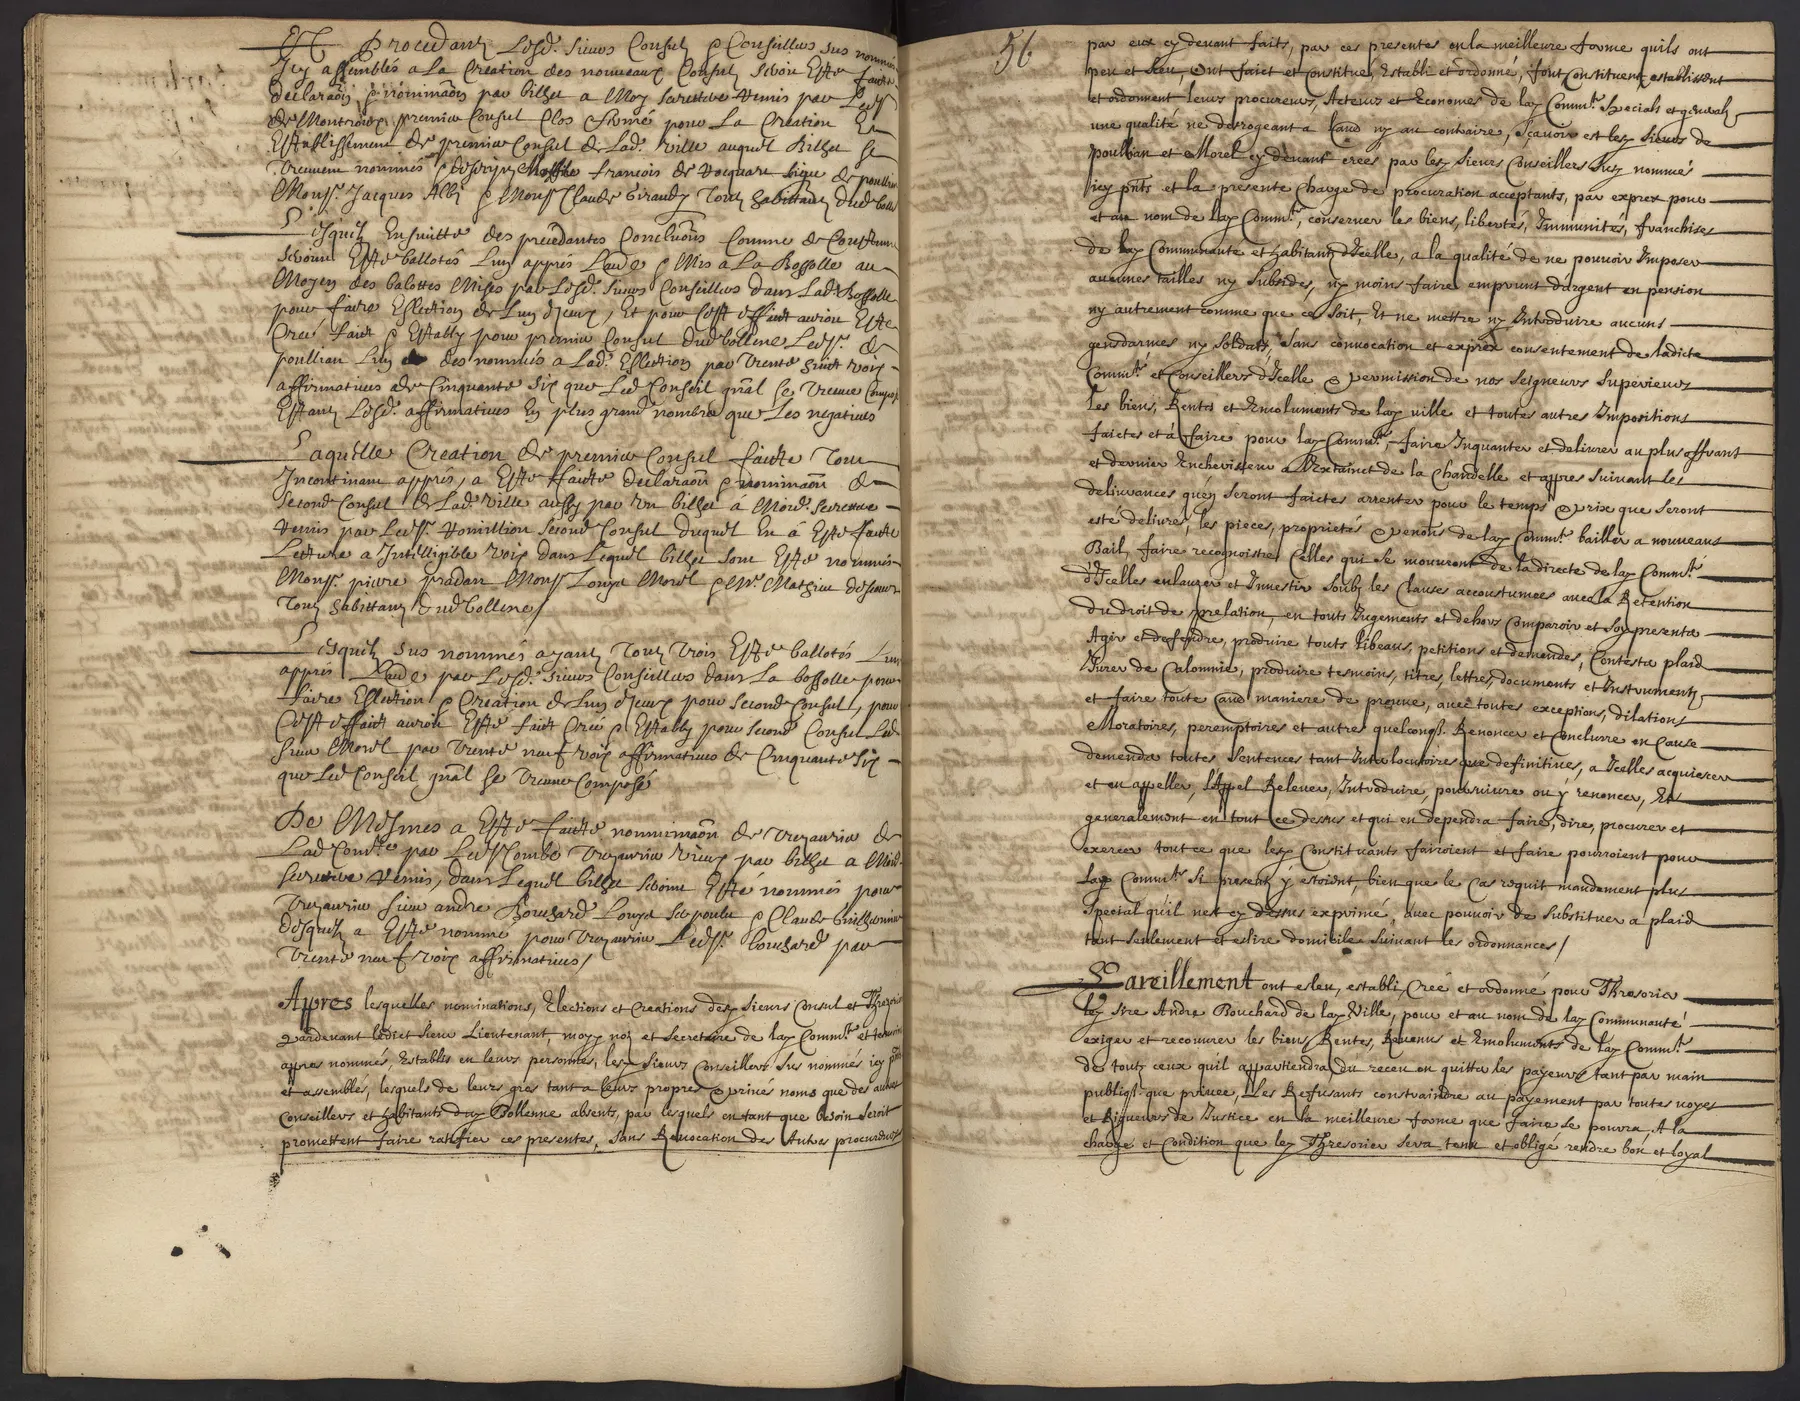 Et Procedant Lesd. Sieurs Consulz & Conseillers sus nommés
Icy assemblés a La Creation des nouveaux Consulz Seroit Esté faicte
declaraon & nominaon par billet a Moy secrettere Remis par Led Sr
de Montroux premier Consul Clos & fermé pour La Creation Et
Establissement de premier Consul de Lad. ville auquel Billet se
treuvent nommés & descripz Noble francois de sieur de poullian
Monsr. Jacques Alby & Monsr Claude Giraudy Tous habittans dud bollene
Lesquelz Ensuitte des precedantes Conclusions Comme de Coustume
seroint Esté ballotés Lun appres Laude & Mis a La Bossolle au
Moyen des balottes Mises par Lesd. Sieurs Conseillers dans Lad Bossolle
pour faire Ellection de Lun d'Jceux, Et pour Cest effaict auroit Esté
Creé faict & Establly pour premier Consul dud bollene Led Sr. de
poullian Lun des nommés a Lad. Ellection par trente huict voix
affirmatives de Cinquante six que Led Conseil gnal se treuve Composé
Estant Lesd. affirmatives En plus grand nombre que Les negatives
Laquelle Creation de premier Consul faicte Tout
Incontinant appres, a Esté faicte declaraon & nominaon de
second Consul de Lad. ville aussy par un billet à Moid. Secrettere
Remis par Led Sr. second Consul duquel En a Esté faicte
Lecture a Intelligible voix dans Lequel billet sont Esté nommés
Monsr. pierre pradan Monsr Louys Morel & Mr. Mathieu
Tous habittans dud bollene /
Lesquelz sus nommés ayant Tous trois Esté ballotés Lun
appres Laude par Lesd. Sieurs Conseillers dans La bossolle pour
faire Ellection & Creation de Lun d'Jceux pour second Consul, pour
Cest effaict auroit Esté faict Creé & Establly pour second Consul Led
sieur Morel par trente neuf voix affirmatives de Cinquante six
que Led Conseil gnal se treuve Composé
De Mesmes a Esté faicte nominaon de tresaurier de
Lad Comte par Led Sr Combe tresaurier vieux par billet a Moid.
secrettere Remis, dans Lequel billet seroint Esté nommés pour
tresaurier sieur andre Bouchard Louys & Claude Guilhermier
desquelz a Esté nommé pour tresaurier Led Sr. bouchard par
trente neuf voix affirmatives /
Appres lesquelles nominations, Elections et Creations desd Sieurs Consul et Thresorier
Pardevant ledict sieur Lieutenant, moy nore et secretaire de lad Commté et tesmoins
appres nommés, Establis en leurs personnes, lesd Sieurs Conseillers sus nommés icy pnts
et assemblés, lesquels de leurs gres tant a leurs propres & privés noms que des autres
Conseillers et habitants dud Bollenne absents, par lesquels en tant que besoin seroit
promettent faire ratifier ces presentes, sans Revocation des Autres procureurs
56
par eux cy devant faits, par ces presentes en la meilleure forme quils ont
peu et sceu, Ont faict et constitué, Establi et ordonné, font constituent establissent
et ordonnent leurs procureurs, Acteurs et Economes de lad Commté specials et generals
une qualité ne desrogeant a l'autre ny au contraire, sçavoir est lesd Sieurs de
Poullian et Morel cy devant crees par lesd Sieurs Conseillers susd nommés
icy pnts et la presente Charge de procuration acceptants, par exprex pour
et au nom de lad Commté, conserver les biens, libertés, Immunités, franchises
de lad Communauté et habitantz d'Icelle, a la qualité de ne pouvoir Imposer
aucunes tailles ny Subsides, ny moins faire emprunt d'argent en pension
ny autrement comme que ce soit, Et ne mettre ny Introduire aucuns
gensdarmes ny soldatz, sans convocation et exprex consentement de ladicte
Commté et Conseillers d'Icelle & permission de nos Seigneurs Superieurs
Les biens, Rentes et Emoluments de lad ville et toutes autres Impositions
faictes et à faire pour lad Commté, faire Inquanter et delivrer au plus offrant
et dernier Encherisseur a l'extainct de la Chandelle et appres suivant les
delivrances qu'en seront faictes arrenter pour le temps & prix que seront
esté delivrés, les pieces, proprietés & venons de lad Commté bailler a nouveaux
Bail, faire recognoistre Celles qui se mouvront de la directe de lad Commté
d'Icelles enlauzer et Investir soubz les Clauses accoustumées avec la Retention
du droit de prelation, en touts Jugements et dehors Comparoir et soy presenter
Agir et deffendre, produire touts libeaux, petitions et demandes, Contester plaid
Jurer de Calomnie, produire tesmoins, titres, lettres, documents et Instrumentz
et faire toute autre maniere de preuve, avec toutes exceptions, dilations
Moratoires, peremptoires et autres quelconqs. Renoncer et Conclurre en Cause
demander toutes Sentences tant Interlocutoires que definitives, a Icelles acquiescer
et en appeller, l'Appel Relever, Introduire, poursuivre ou y renoncer, Et
generalement en tout ce dessus et qui en dependra faire, dire, procurer et
exercer tout ce que lesd Constituants fairoient et faire pourroient pour
lad Commté si present y estoient, bien que le Cas requit mandement plus
Special qu'il n'est cy dessus exprimé, avec pouvoir de substituer a plaid
tant seulement et eslire domicile suivant les ordonnances /
Pareillement ont esleu, establi, Creé et ordonné pour Thresorier
led Sire Andre Bouchard de lad Ville, pour et au nom de lad Communauté
exiger et recouvrer les biens, Rentes, Revenus et Emoluments de lad Commté
de touts ceux qu'il appartiendra, du receu en quitter les payeurs tant par main
publiq. que privée, Les Refusants constraindre au payement par toutes voyes
et Rigueurs de Justice en la meilleure forme que faire se pourra, A la
charge et Condition que led Thresorier sera tenu et obligé rendre bon et loyal